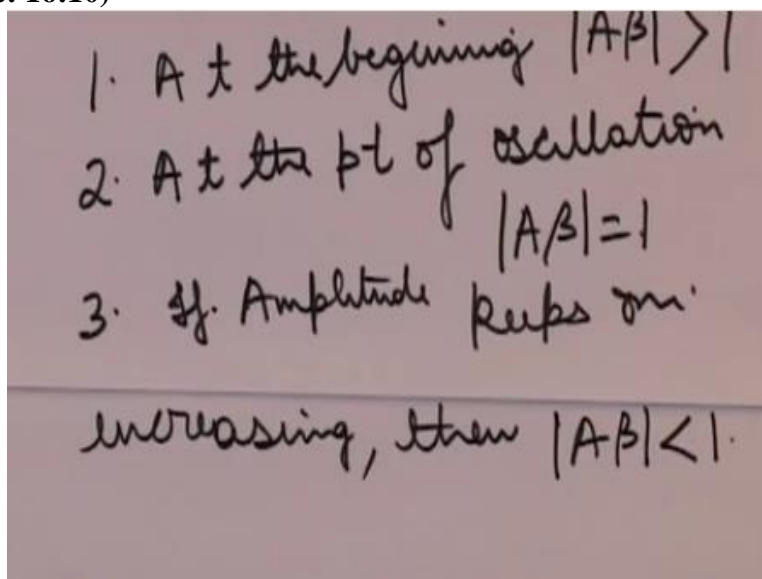 1. At the begining |Aβ| > 1
2. At the pt of oscillation
|Aβ| = 1
3. If. Amplitude keeps on
increasing, then |Aβ| < 1.